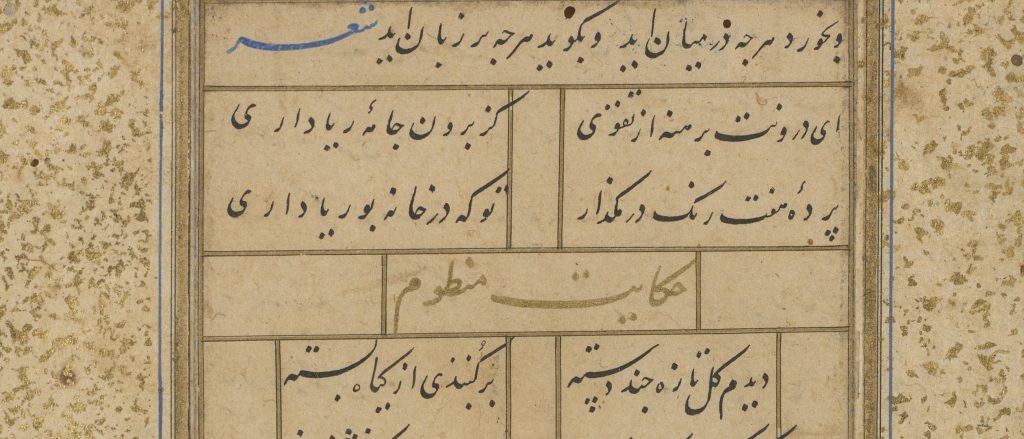 و بخورد هرجه در میان اید و بکوید هرجه بر زبان اید شعر
ای درونت برهنه از تقوی کز برون جامهٔ ریا داری
پردهٔ هفت رنک در مکذار تو که در خانه بوریا داری
حکایت منظوم
دیدم کل تازه جند دسته بر کنبذی از کیاه بسته